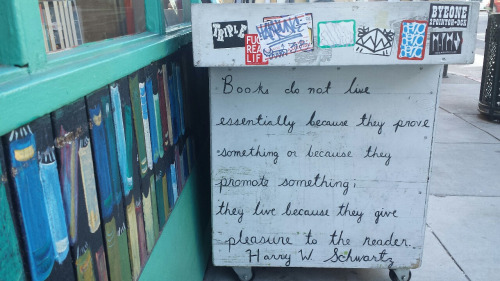 TRIPLE
FUCK
REAL
LIFE
BYEONE
Books do not live
essentially because they prove
something or because they
promote something,
they live because they give
pleasure to the reader.
Harry W. Schwartz